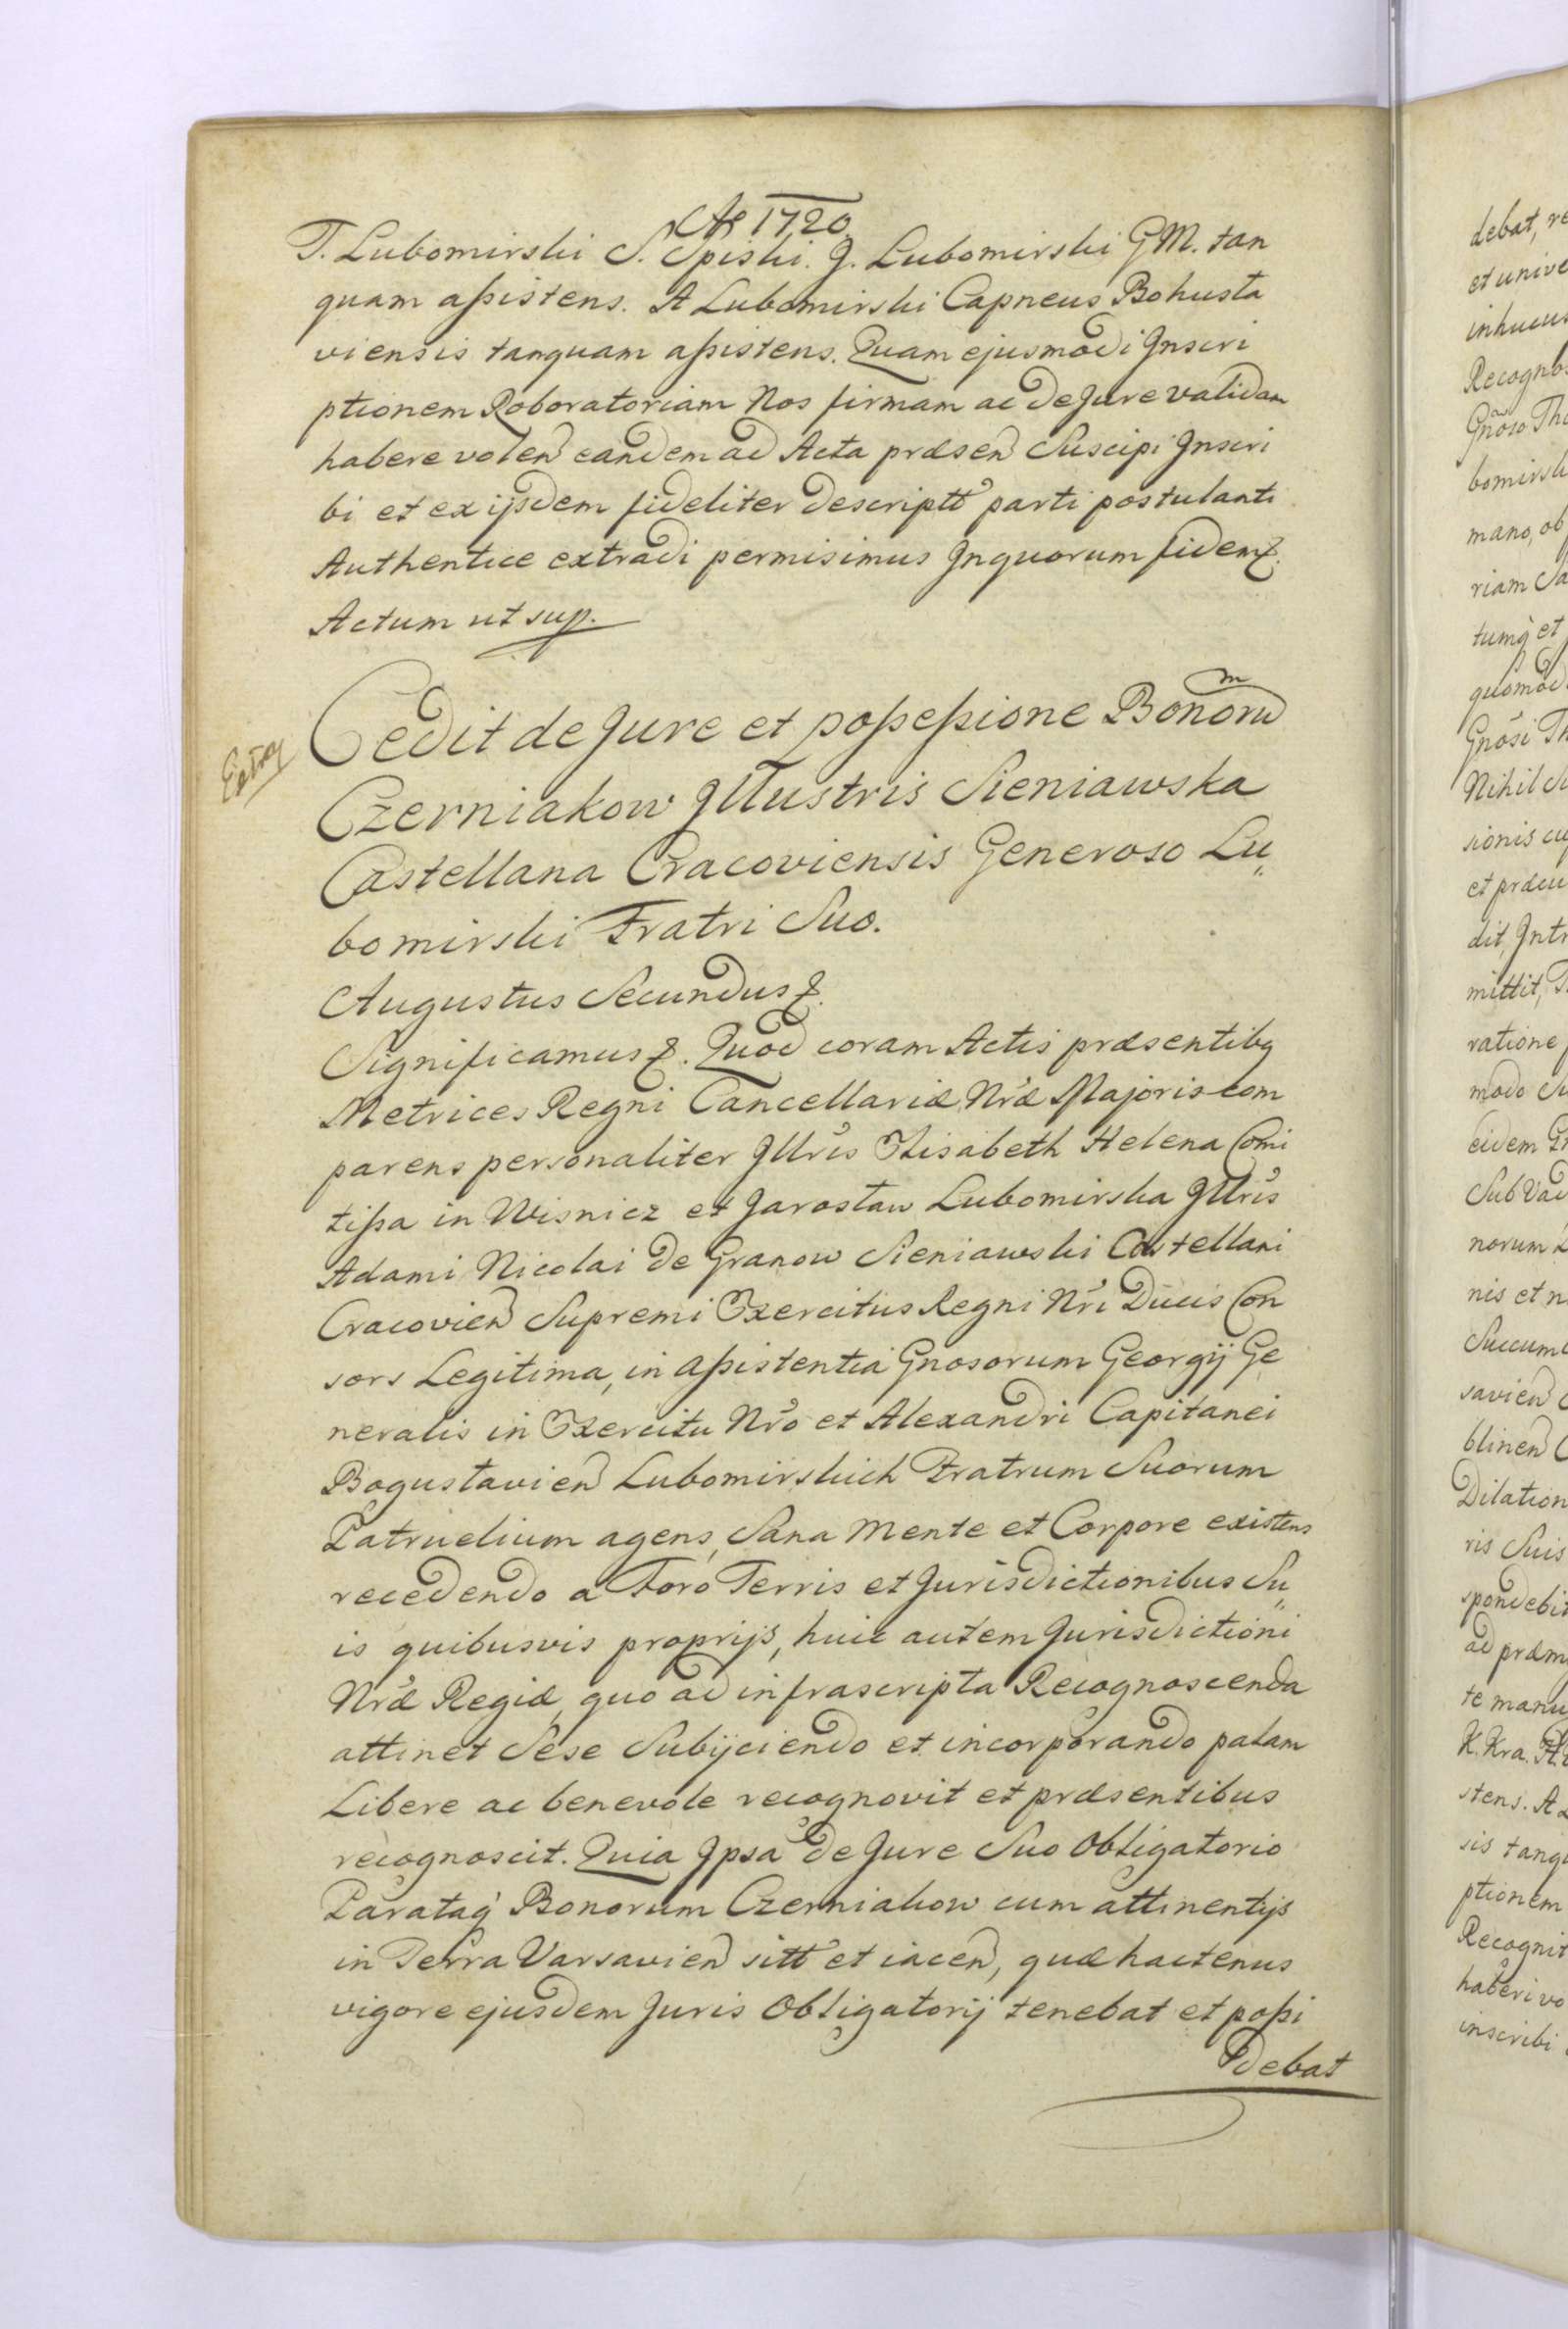 Ao 1720
T. Lubomirski S. Spiski. J. Lubomirski GM. tan
quam assistens. A Lubomirski Capneus Bohusla
viensis tanquam assistens. Quam ejusmodi Inscri
ptionem Roboratoriam Nos firmam ac de Jure validam
habere volen eandem ad Acta præsen Suscipi Inscri
bi et ex ijsdem fideliter descriptt parti postulanti
Authentice extradi permisimus Inquorum fidem &.
Actum ut sup.
Cedit de Jure et possessione Bonoru
m
Czerniakow Illustris Sieniawska
Castellana Cracoviensis Generoso Lu„
bomirski Fratri Suo.
Augustus Secundus &.
Significamus &. Quod coram Actis præsentibq
Metrices Regni Cancellariæ Nræ Majoris com
parens personaliter Illris Elisabeth Helena Comi
tissa in Wisnicz et Jaroslaw Lubomirska Illris
Adami Nicolai de Granow Sieniawski Castellani
Cracovien Supremi Exercitus Regni Nri Ducis Con
sors Legitima, in assistentia Gnosorum Georgij Ge
neralis in Exercitu Nro et Alexandri Capitanei
Boguslavien Lubomirskich Fratrum Suorum
Patruelium agens, Sana Mente et Corpore existens
recedendo a Foro Terris et Jurisdictionibus Su„
is quibusvis proprijs, huic autem Jurisdictioni
Nræ Regiæ, quo ad infrascripta Recognoscenda
attinet Sese Subijciendo et incorporando palam
Libere ac benevole recognovit et præsentibus
recognoscit. Quia Ipsa de Jure Suo Obligatorio
Parataq Bonorum Czerniakow cum attinentijs
in Terra Varsavien sitt et iacen, quæ hactenus
vigore ejusdem Juris Obligatorij tenebat et possi
debat
debat, re
et unive
inhucus
Recogno
Gnoso Tho
bomirsk
mano, ob
riam Sa
tumq et
quomod
Gnosi Th
Nihil Su
sionis cu
et prædi
dit, Intr
mittit,
ratione
modo Su
eidem G
Sub Vad
norum
nis et n
Succum
savien
blinen
Dilation
ris Suis
spondebit
ad præm
te manu
K. Kra.
stens. A
sis tanq
ptionem
Recognit
haberi vo
inscribi